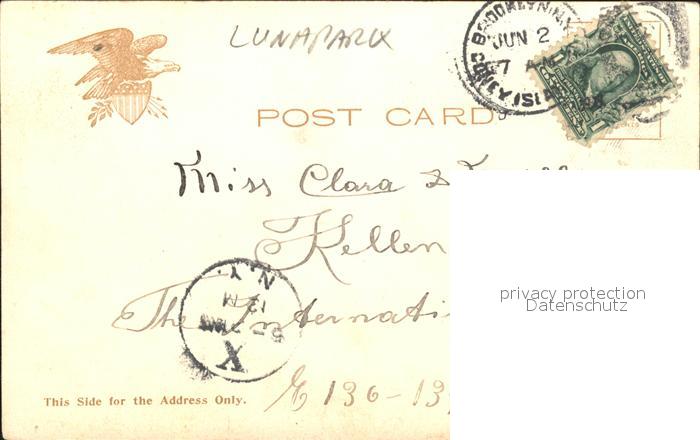 LUNAPARK
BROOKLYN N.Y.
JUN 2
7 AM
CONEY ISL
POST CARD
Miss Clara
Kellen
N.Y.
12 M
X
The Internati
136-13
This Side for the Address Only.
privacy protection
Datenschutz